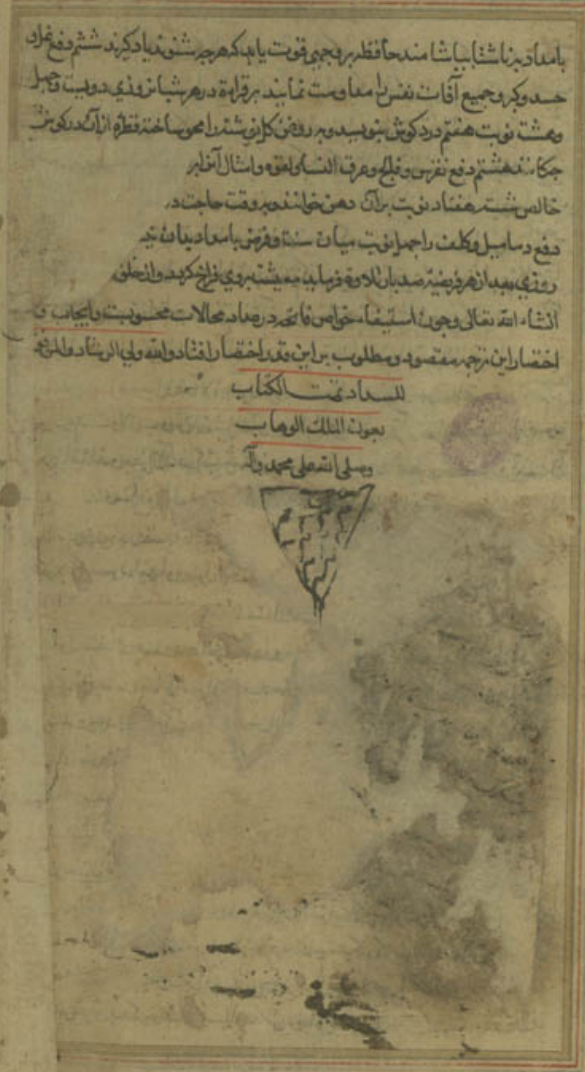 بامداد بناشتا بیاشامند حافظه بر وجهی قوت یابد که هرچه شنوند یاد گیرند ششم دفع
حسد و کبر و جمیع آفات نفس را مداومت نمایند بر قراءة در هر شبانروزی دویست و چهل
وهشت نوبت هفتم درد گوش بنویسد و به روغن محو ساخته قطره از آن در گوش
چکانند هشتم دفع نقرس و فلج و عرق النسا و لقوه و امثال آنرا بر
خالص شسته هفتاد نوبت بران دهن خوانند و به وقت حاجت در
دفع دمامیل و کلف را چهل نوبت میان سنت و فرض بامداد بدان
روزی بعد از هر فریضه صد بار تلاوة فرماید معیشت بروی فراخ گردد و از خلق
انشاء الله تعالی و چون استیفاء خواص فاتحه در عداد محالات محسوبست و ایجاب و
اختصار این ترجمه مقصود و مطلوب بر این قدر اختصار افتاد والله ولی الرشاد و
للسداد تمت الکتاب
بعون الملک الوهاب
وصلی الله علی محمد وآله